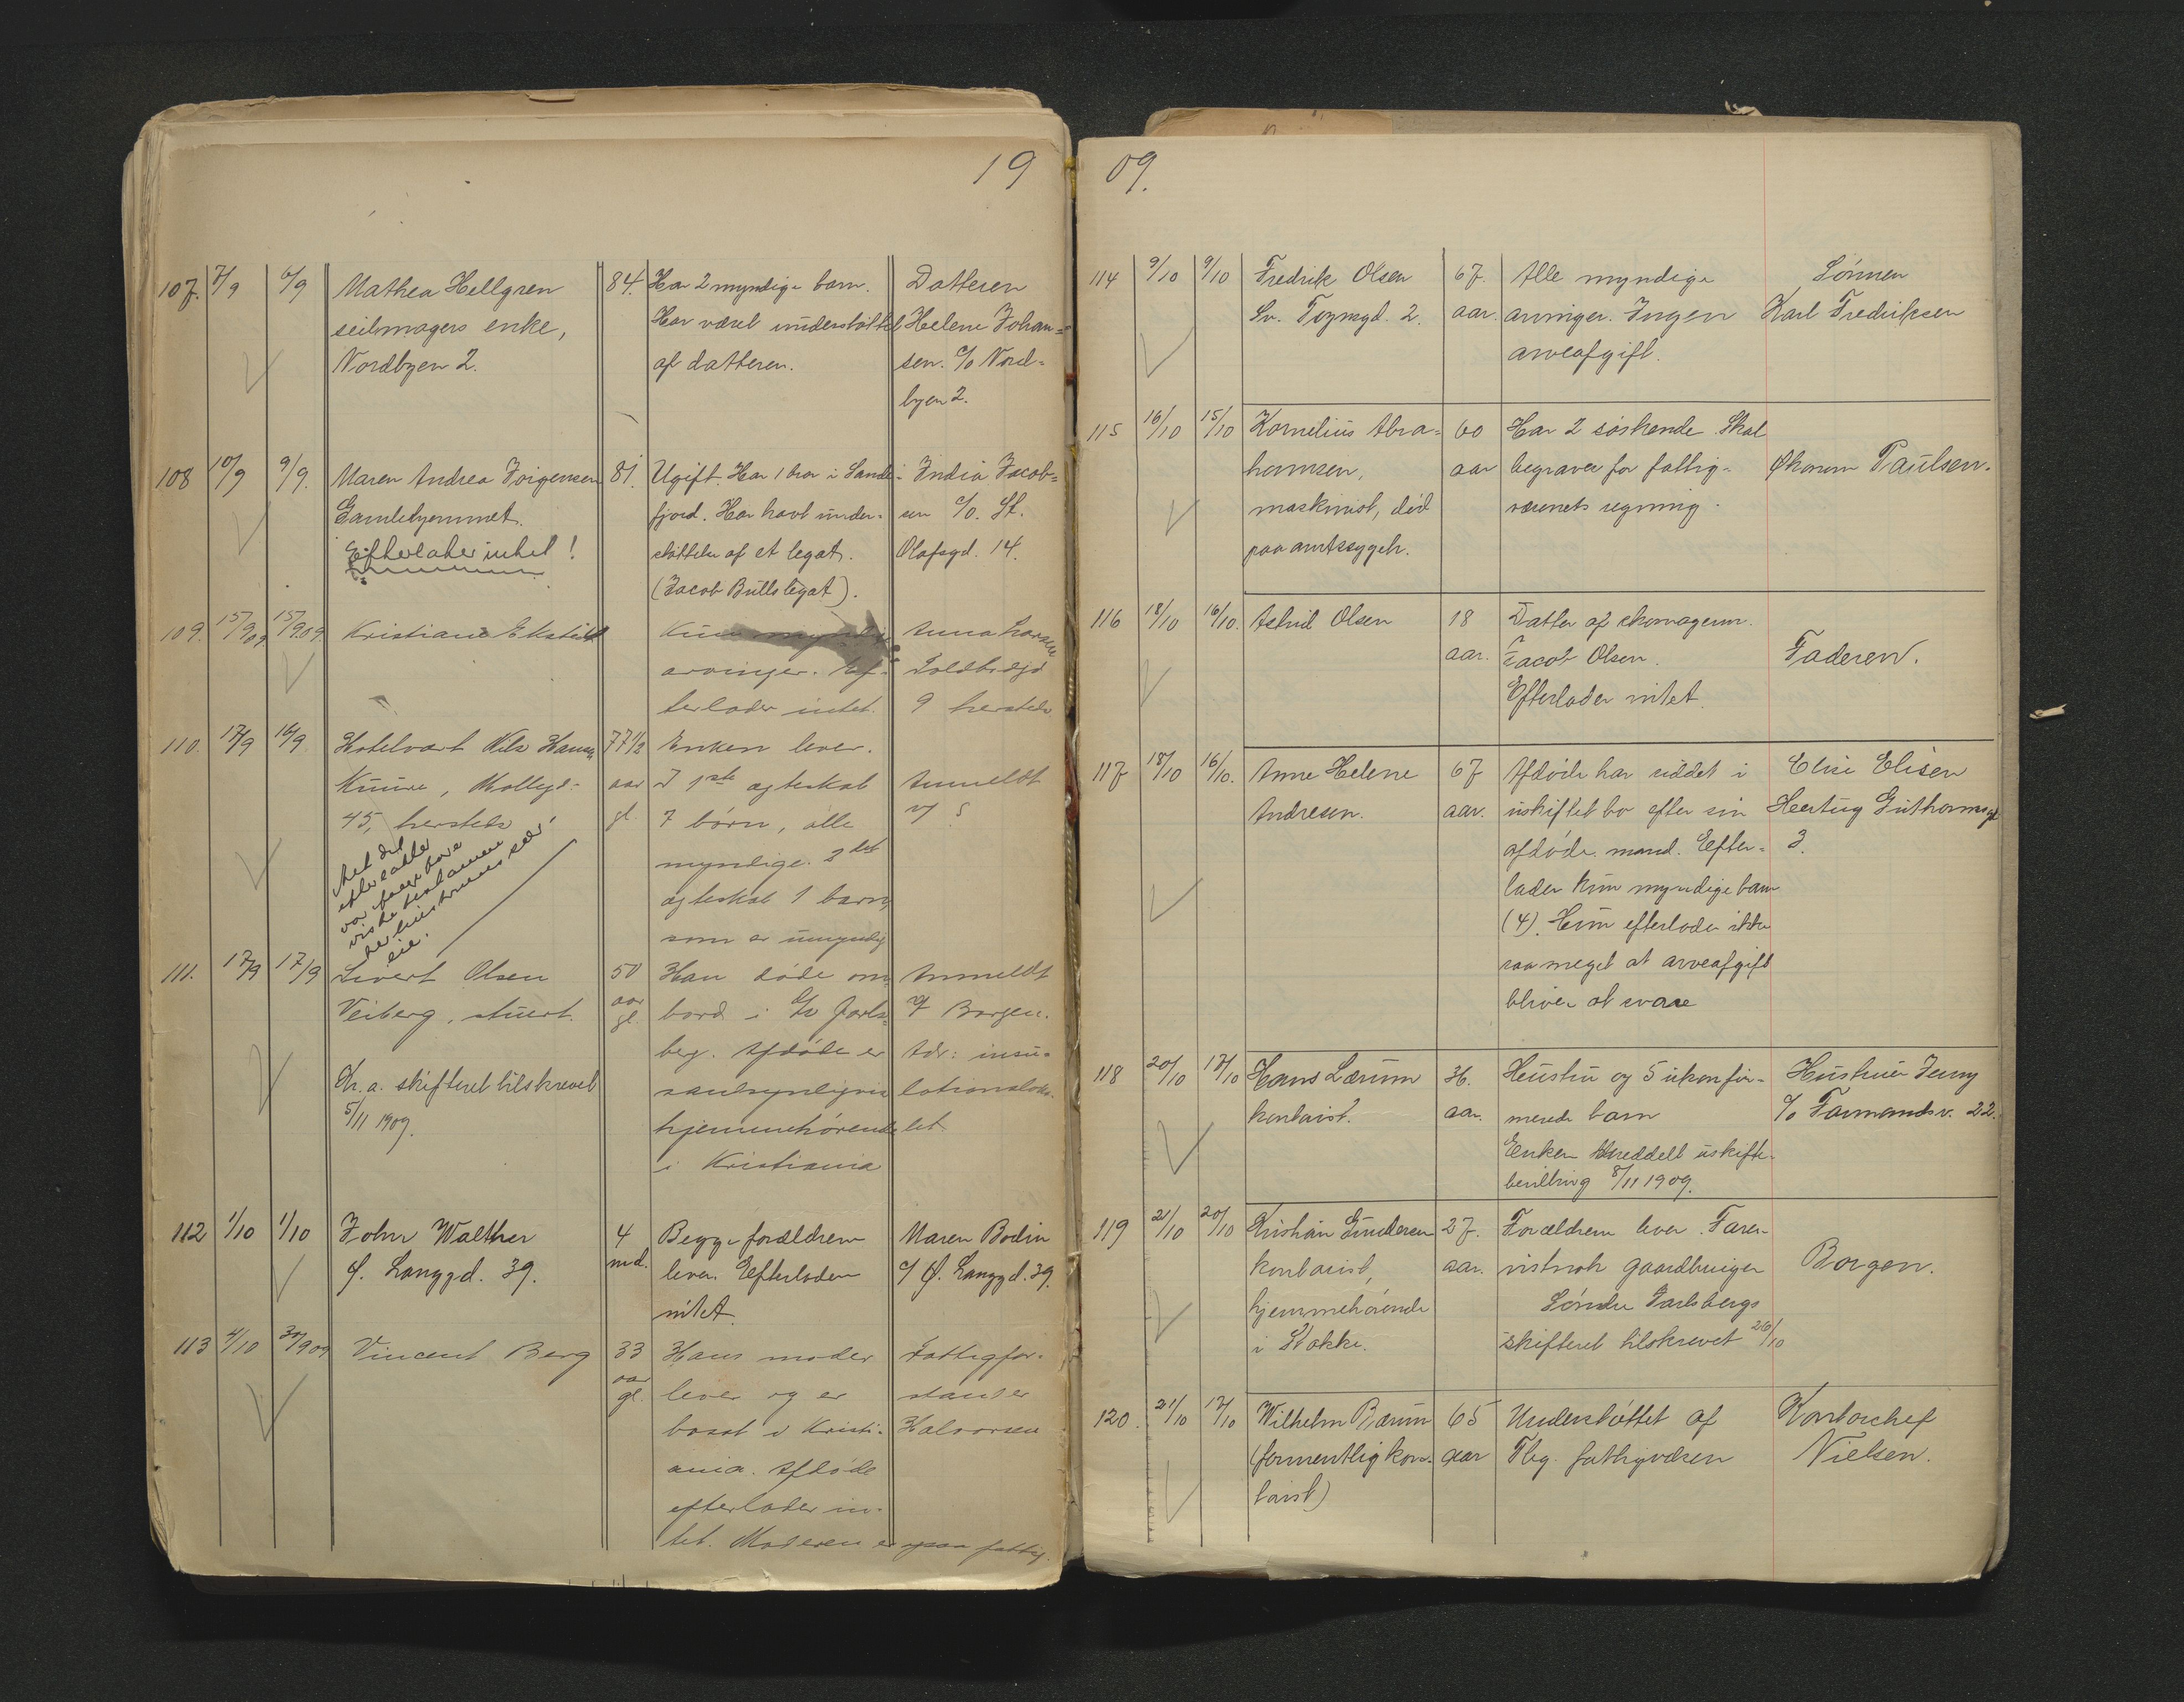 19
107. 7/9 6/9 Mathea Hellgren 84. Har 2 myndige barn. Datteren
seilmagers enke, Har været understøttet Helene Johan=
Nordbyen 2. af datteren. sen. c/o Nord=
byen 2.
108 10/9 9/9. Maren Andrea Jörgensen 81. Ugift. Har 1 bror i Sande- India Jacob=
Gamlehjemmet. fjord. Har havt under= sen c/o. St.
Efterlater intet! støttelse af et legat. Olafsgd. 14.
(Jacob Bulls legat).
109. 15/9 09 15/9 09. Kristiane Ekstedt Kun myndige Anna Larsen
arvinger. Ef=
terlader intet. 9 hersteds
110. 17/9 16/9 Hotelvært Nils Hansen 77 1/2 Enken lever.
Kuure, Mollegd. aar I 1ste ægteskab Anmeldt
45, hersteds gl. 7 börn, alle
myndige. 2det
ægteskab 1 barn,
som er umyndig
111. 17/9 17/9 Sivert Olsen 50 Han døde om= Anmeldt
Veiberg, stuert. aar gl. bord i S/S Jarls= af Borgen.
berg. Afdøde er Adr: insu=
Kr.a. skifteret tilskrevet sandsynligvis lationsloka=
5/11 1909. hjemmehörende let
i Kristiania
112 1/10 1/10 John Walther 4 Begge forældrene Maren Bodin
Ø. Langgd. 39. md. lever. Efterlader c/ Ø. Langgd. 39.
intet.
113 4/10 30/9 09 Vincent Berg 33 Hans moder Fattigfor=
aar gl. lever og er stander
bosat i Kristi= Halvorsen
ania. Afdöde
efterlader in=
tet. Moderen er ogsaa fattig.
09.
114 9/10 9/10 Fredrik Olsen 67. Alle myndige Sønnen
Sv. Foynsgd. 2. aar. arvinger. Ingen Karl Fredriksen
arveafgift.
115 16/10 15/10 Kornelius Abra= 60 Har 2 søskende. Skal
hamsen, aar begraves for fattig= Økonom Paulsen.
maskinist, död væsenets regning.
paa amtssygeh.
116 18/10 16/10. Astrid Olsen 18 Datter af skomagerm.
aar. Jacob Olsen. Faderen.
Efterlader intet.
117 18/10 16/10. Anne Helene 67 Afdøde har siddet i Elise Elisen
Andresen. aar. uskiftet bo efter sin Hertug Guthormsgd
afdøde mand. Efter= 3.
lader kun myndige barn
(4). Hun efterlader ikke
saa meget at arveafgift
bliver at svare
118 20/10 17/10 Hans Lærum 36. Hustru og 5 ukonfir= Hustruen Jenny
kontorist. aar. merede barn c/o Farmandsv. 22.
Enken meddelt uskifte=
bevilling 8/11 1909.
119 21/10 20/10 Kristian Gunderen 27. Forældrene lever. Faren
kontorist, aar. vistnok gaardbruger Borgen.
hjemmehørende Söndre Jarlsbergs
i Stokke. skifteret tilskrevet 26/10
120. 21/10 17/10 Wilhelm Bærum 65 Understøttet af Kontorchef
(formentlig kon= aar Tbg. fattigvæsen Nielsen.
torist)